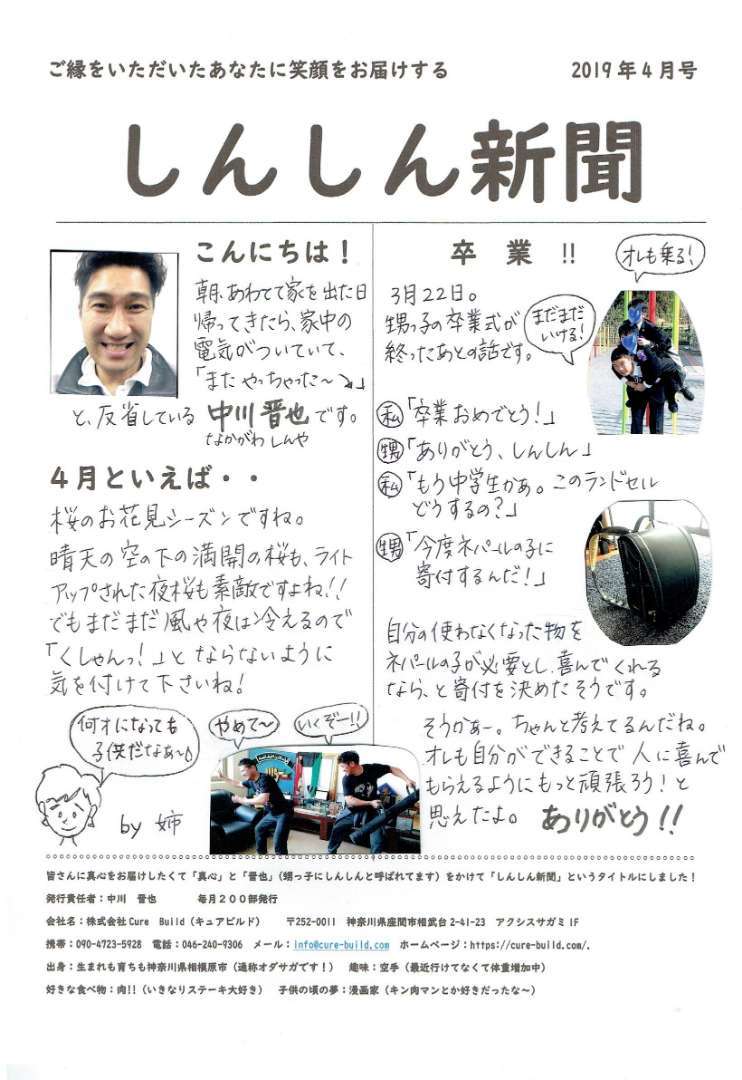 ご縁をいただいたあなたに笑顔をお届けする
2019年4月号
しんしん新聞
こんにちは！
朝、あわてて家を出た日
帰ってきたら、家中の
電気がついていて、
「また やっちゃった〜↘」
と、反省している 中川 晋也 です。
なかがわ しんや
４月といえば・・
桜のお花見シーズンですね。
晴天の空の下の満開の桜も、ライト
アップされた夜桜も素敵ですよね！！
でもまだまだ風や夜は冷えるので
「くしゃんっ！」と ならないように
気を付けて下さいね！
何才になっても
子供だなあ〜♪
by 姉
やめて〜
いくぞー！！
卒業!!
オレも乗る！
まだまだ
いける！
3月22日。
甥っ子の卒業式が
終ったあとの話です。
私「卒業おめでとう！」
甥「ありがとう、しんしん」
私「もう中学生かぁ。このランドセル
どうするの？」
甥「今度ネパールの子に
寄付するんだ！」
自分の使わなくなった物を
ネパールの子が必要とし、喜んでくれる
なら、と寄付を決めたそうです。
そうかぁー。ちゃんと考えてるんだね。
オレも自分ができることで人に喜んで
もらえるようにもっと頑張ろう！と
思えたよ。 ありがとう！！
皆さんに真心をお届けしたくて「真心」と「晋也」（甥っ子にしんしんと呼ばれてます）をかけて「しんしん新聞」というタイトルにしました！
発行責任者：中川　晋也　　毎月２００部発行
会社名：株式会社Cure Build（キュアビルド）　〒252-0011　神奈川県座間市相武台2-41-23　アクシスサガミ1F
携帯：090-4723-5928　電話：046-240-9306　メール：info@cure-build.com　ホームページ：https://cure-build.com/.
出身：生まれも育ちも神奈川県相模原市（通称オダサガです！）　趣味：空手（最近行けてなくて体重増加中）
好きな食べ物：肉!!（いきなりステーキ大好き）　子供の頃の夢：漫画家（キン肉マンとか好きだったな〜）